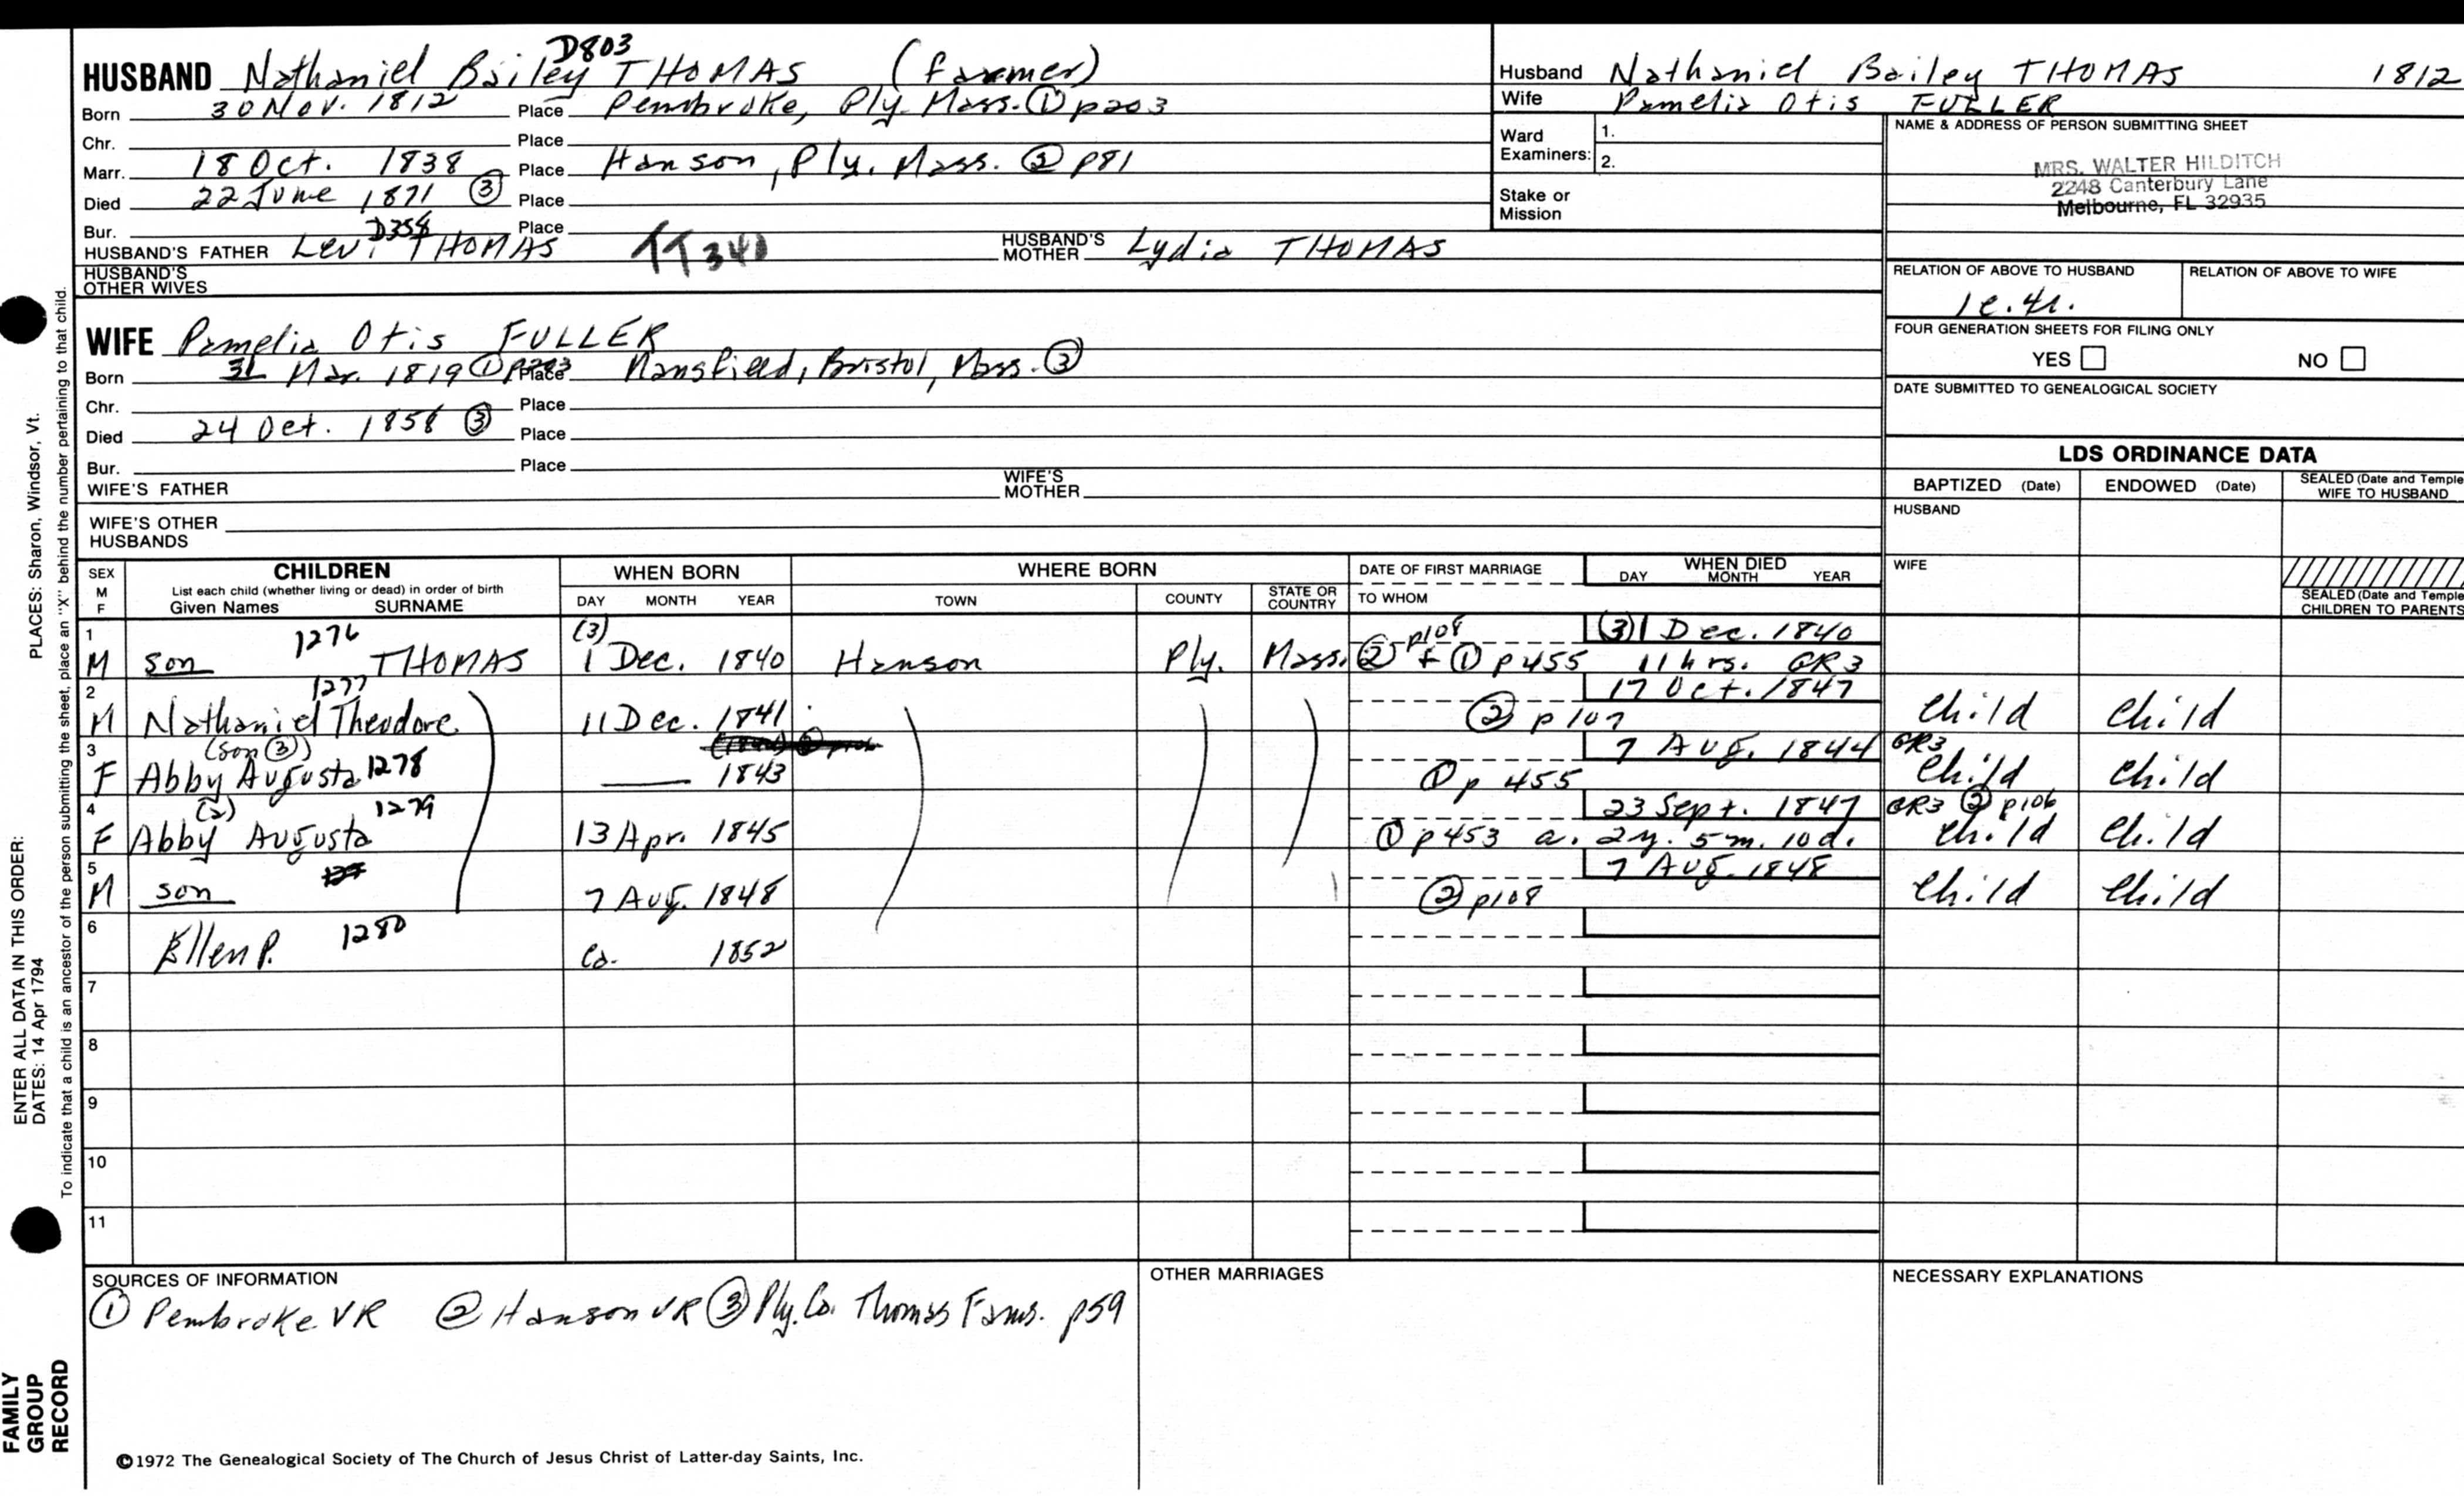 D803
HUSBAND Nathaniel Bailey THOMAS (farmer)
Born 30 Nov. 1812 Place Pembroke, Ply. Mass. ① p203
Chr. Place
Marr. 18 Oct. 1838 Place Hanson, Ply. Mass. ② p81
Died 22 June 1871 ③ Place
Bur. Place
D358
HUSBAND'S FATHER Levi THOMAS TT340 HUSBAND'S MOTHER Lydia THOMAS
HUSBAND'S OTHER WIVES
WIFE Pamelia Otis FULLER
Born 31 Mar. 1819 ① p203 Place Mansfield, Bristol, Mass. ③
Chr. Place
Died 24 Oct. 1858 ③ Place
Bur. Place
WIFE'S FATHER WIFE'S MOTHER
WIFE'S OTHER HUSBANDS
Husband Nathaniel Bailey THOMAS 1812
Wife Pamelia Otis FULLER
Ward Examiners: 1.
2.
Stake or Mission
NAME & ADDRESS OF PERSON SUBMITTING SHEET
MRS. WALTER HILDITCH
2248 Canterbury Lane
Melbourne, FL 32935
RELATION OF ABOVE TO HUSBAND RELATION OF ABOVE TO WIFE
FOUR GENERATION SHEETS FOR FILING ONLY
YES NO
DATE SUBMITTED TO GENEALOGICAL SOCIETY
LDS ORDINANCE DATA
BAPTIZED (Date) ENDOWED (Date) SEALED (Date and Temple WIFE TO HUSBAND
HUSBAND
WIFE
SEALED (Date and Temple CHILDREN TO PARENTS
SEX M F CHILDREN WHEN BORN WHERE BORN DATE OF FIRST MARRIAGE WHEN DIED
List each child (whether living or dead) in order of birth
Given Names SURNAME DAY MONTH YEAR TOWN COUNTY STATE OR COUNTRY TO WHOM DAY MONTH YEAR
1 1276 (3) p108 (3) 1 Dec. 1840
M son THOMAS 1 Dec. 1840 Hanson Ply. Mass. ② + ① p455 11 hrs. GR3
2 1277 17 Oct. 1847
M Nathaniel Theodore 11 Dec. 1841 ② p107 Child Child
3 (son ③) 7 Aug. 1844 GR3
F Abby Augusta 1278 1843 ① p455 Child Child
4 (2) 1279 23 Sept. 1847 GR3 ② p106
F Abby Augusta 13 Apr. 1845 ① p453 a. 2y. 5m. 10d. Child Child
5 7 Aug. 1848
M son 7 Aug. 1848 ② p108 Child Child
6 Ellen P. 1280 Ca. 1852
7
8
9
10
11
SOURCES OF INFORMATION
① Pembroke VR ② Hanson VR ③ Ply. Co. Thomas Fams. p59
OTHER MARRIAGES
NECESSARY EXPLANATIONS
©1972 The Genealogical Society of The Church of Jesus Christ of Latter-day Saints, Inc.
ENTER ALL DATA IN THIS ORDER:
DATES: 14 Apr 1794 PLACES: Sharon, Windsor, Vt.
To indicate that a child is an ancestor of the person submitting the sheet, place an "X" behind the number pertaining to that child.
FAMILY
GROUP
RECORD